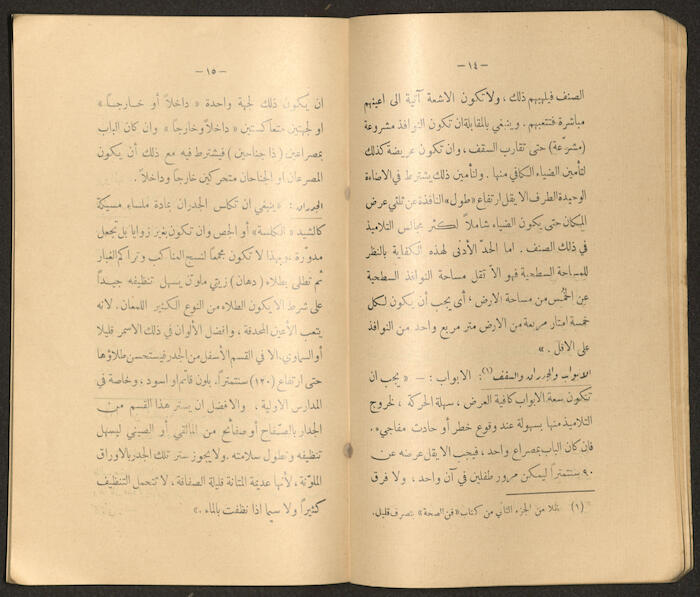 — ١٤ —
الصنف فيلهيهم ذلك ، ولا تكون الاشعة آتية الى اعينهم
مباشرة فتتعبهم . وينبغي بالمقابلة ان تكون النوافذ مشروعة
(مشرعة) حتى تقارب السقف ، وان تكون عريضة كذلك
لتأمين الضياء الكافي منها . ولتأمين ذلك يشترط في الاضاءة
الوحيدة الطرف الا يقل ارتفاع « طول » النافذة عن ثلثي عرض
المكان حتى يكون الضياء شاملاً لكثر مجالس التلاميذ
في ذلك الصنف . اما الحدّ الأدنى لهذه الكفاية بالنظر
للمساحة السطحية فهو الا تقل مساحة النوافذ السطحية
عن الخُمُس من مساحة الارض ، أي يجب أن يكون لكل
خمسة امتار مربعة من الارض متر مربع واحد من النوافذ
على الاقل . »
الابواب والجدران والسقف (١) : الابواب : — « يجب ان
تكون سعة الابواب كافية العرض ، سهلة الحركة ، لخروج
التلاميذ منها بسهولة عند وقوع خطر أو حادث مفاجيء .
فان كان الباب بمصراع واحد ، فيجب الا يقل عرضه عن
٩٠ سنتمتراً ليمكن مرور طفلين في آن واحد ، ولا فرق
(١) نقلا من الجزء الثاني من كتاب « فن الصحة » بتصرف قليل .
— ١٥ —
ان يكون ذلك لجهة واحدة « داخلاً أو خارجاً »
او لجهتين متعاكستين « داخلاً وخارجاً » وان كان الباب
بمصراعين ( ذا جناحين ) فيشترط فيه مع ذلك أن يكون
المصرعان او الجناحان متحركين خارجاً وداخلاً .
الجدران : « ينبغي ان تكلس الجدران بمادة ملساء مسيكة
كالشيد « الكلسة » أو الجص وان تكون بغير زوايا بل تجعل
مدورة وبهذا لا تكون مجمعاً لنسج العناكب وتراكم الغبار
ثم تطلى بطلاء ( دهان ) زيتي ملون يسهل تنظيفه جيداً
على شرط الا يكون الطلاء من النوع الكثير اللمعان . لانه
يتعب الأعين المحدقة ، وافضل الألوان في ذلك الاسمر قليلا
أو السماوي ، الا في القسم الأسفل من الجدر فيستحسن طلاؤها
حتى ارتفاع (١٢٠) سنتمتراً . بلون قاتم او اسود ، وخاصة في
المدارس الاولية . والافضل ان يستر هذا القسم من
الجدار بالصّفاح أو صفائح من المالقي أو الصيني ليسهل
تنظيفه وتطول سلامته . ولا يجوز ستر تلك الجدر بالاوراق
الملوّنة ، لأنها عديمة المتانة قليلة الصفاقة ، لا تتحمل التنظيف
كثيراً ولا سيما اذا نظفت بالماء . »